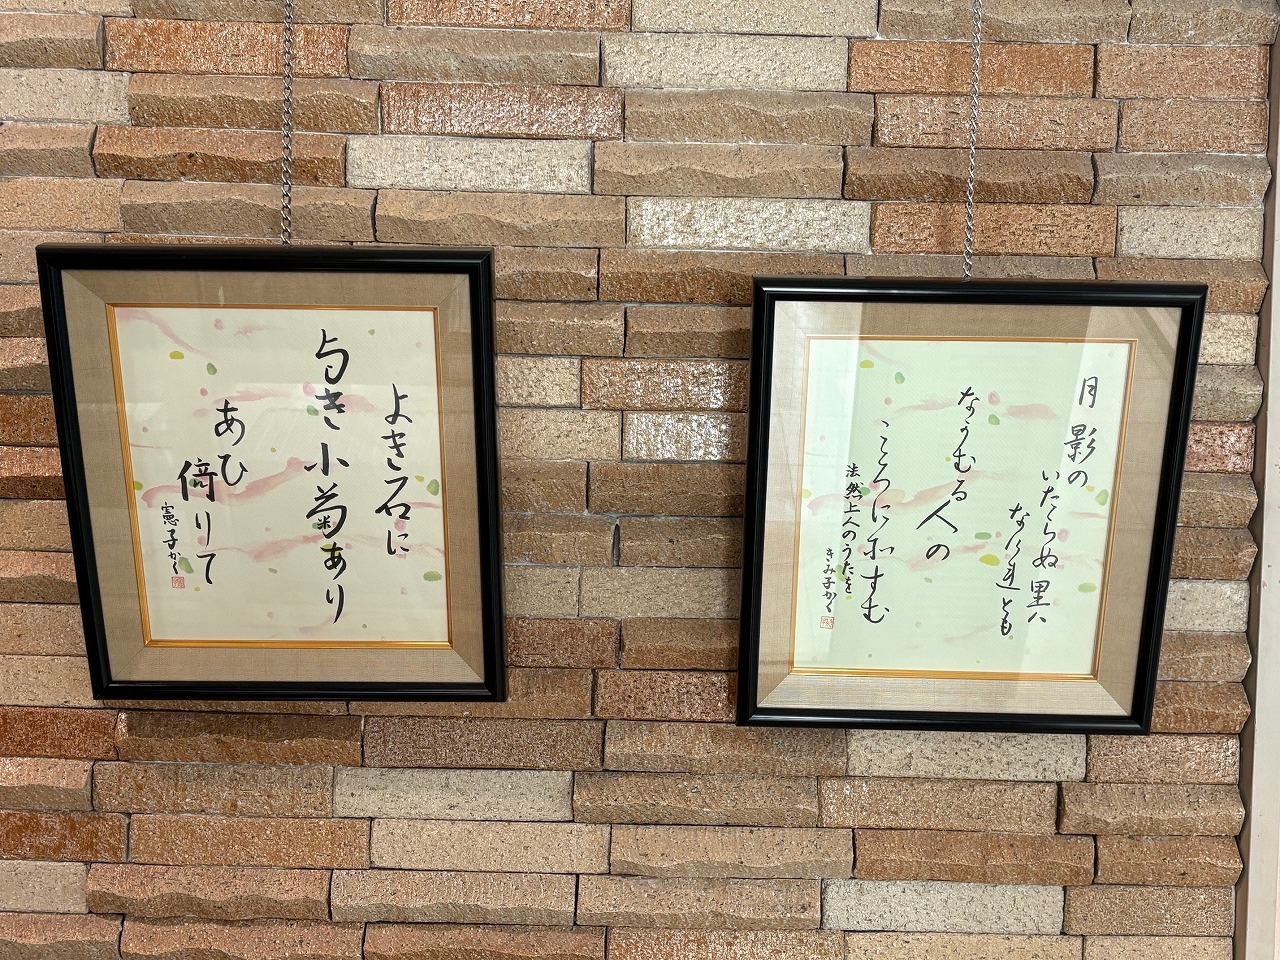 月影の
いたらぬ里ハ
なけ連とも
なかむる人の
こころにそすむ
法然上人のうたを
きみ子かく
よき石に
与き小菊あり
あひ
倚りて
憲子かく